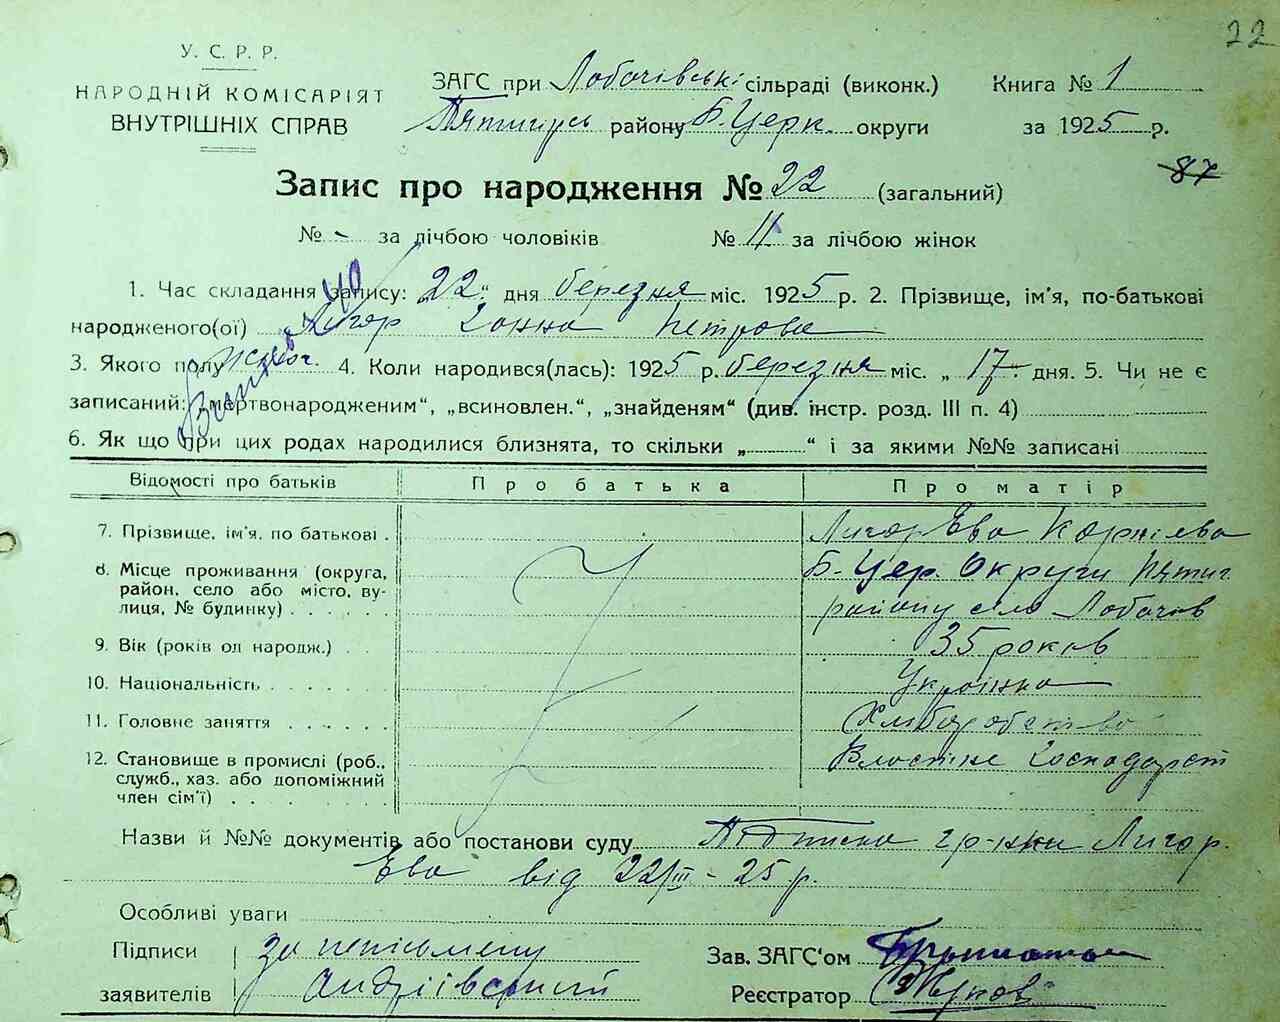 22
У. С. Р. Р.
НАРОДНІЙ КОМІСАРІЯТ
ВНУТРІШНІХ СПРАВ
ЗАГС при Лобачівські сільраді (виконк.) Книга № 1
Пятигирсь району Б. Церк. округи за 1925 р.
87
Запис про народження № 22 (загальний)
№ - за лічбою чоловіків № 11 за лічбою жінок
1. Час складання запису: 22 „ дня березня міс. 1925 р. 2. Прізвище, ім'я, по-батькові
народженого(ої) Лигор Ганна Петрова
3. Якого полу жіноч. 4. Коли народився(лась): 1925 р. березня міс. „ 17 " дня. 5. Чи не є
записаний: „мертвонародженим“, „всиновлен.“, „знайденям“ (див. інстр. розд. III п. 4)
6. Як що при цих родах народилися близнята, то скільки „ “ і за якими №№ записані
Відомості про батьків Про батька Про матір
7. Прізвище, ім'я, по батькові . Лигор Ева Корнієва
8. Місце проживання (округа, Б-Цер. Округи Пятиг.
район, село або місто, ву- району село Лобачів
лиця, № будинку) . . . . .
9. Вік (років од народж.) . . 35 років
10. Національність . . . . . . Українка
11. Головне заняття . . . . . Хліборобство
12. Становище в промислі (роб., Власне Господарст
служб., хаз. або допоміжний
член сім'ї) . . . . . . . .
Назви й №№ документів або постанови суду Підписка гр-нки Лигор.
Ева від 22/III - 25 р.
Особливі уваги
Підписи за неписьмену Зав. ЗАГС'ом
заявителів Андріївський Реєстратор